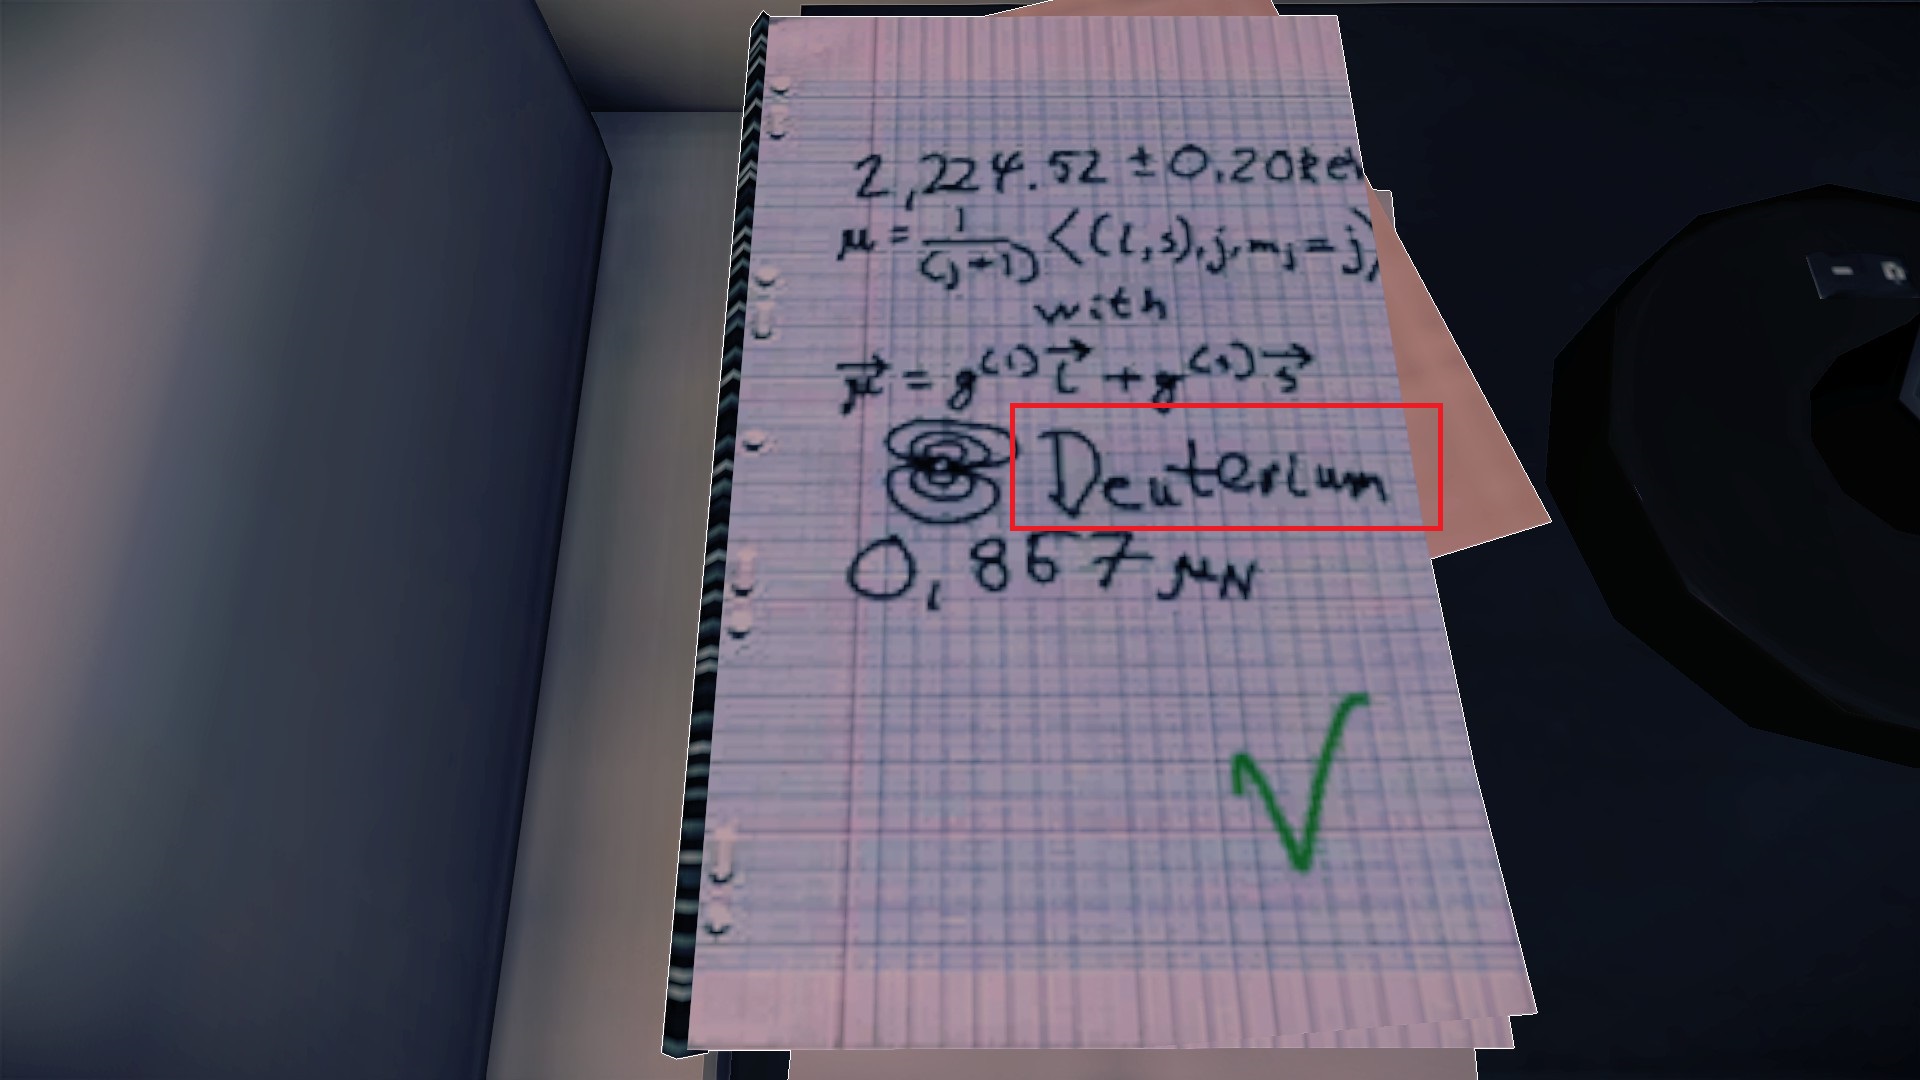 2,224.52 ± 0.20kev
μ = 1/(j+1) <(l,s),j,mj=j)
with
μ⃗ = g(l) l⃗ + g(s) s⃗
Deuterium
0,867 μN